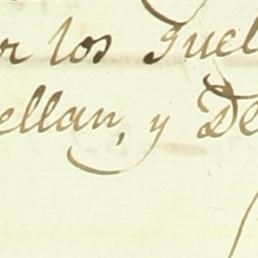 or los Juel
ellan, y De